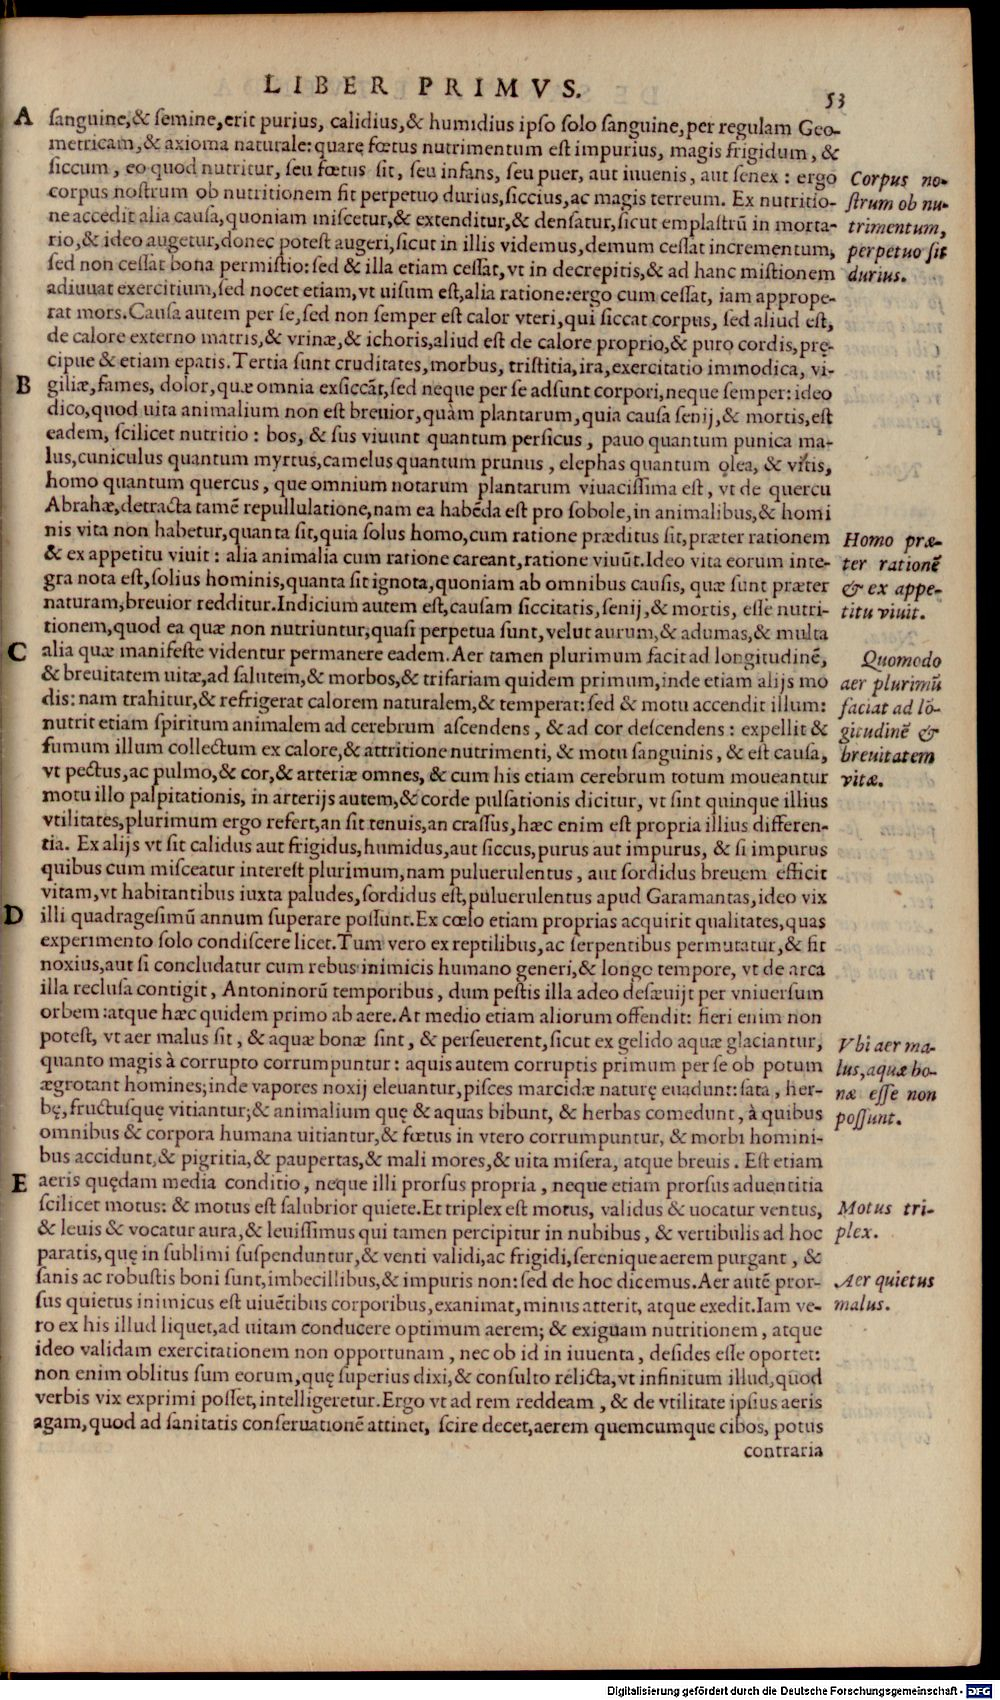 LIBER PRIMVS.
53
A
ſanguine,& ſemine,erit purius, calidius,& humidius ipſo ſolo ſanguine,per regulam Geo-
metricam,& axioma naturale: quarę fœtus nutrimentum eſt impurius, magis frigidum, &
ſiccum, eo quod nutritur, ſeu fœtus ſit, ſeu infans, ſeu puer, aut iuuenis, aut ſenex: ergo
corpus noſtrum ob nutritionem fit perpetuo durius,ſiccius,ac magis terreum. Ex nutritio-
ne accedit alia cauſa,quoniam miſcetur,& extenditur,& denſatur,ſicut emplaſtrũ in morta-
rio,& ideo augetur,donec poteſt augeri,ſicut in illis videmus,demum ceſſat incrementum,
ſed non ceſſat bona permiſtio: ſed & illa etiam ceſſat,vt in decrepitis,& ad hanc miſtionem
adiuuat exercitium,ſed nocet etiam,vt uiſum eſt,alia ratione:ergo cum ceſſat, iam appropę-
rat mors.Cauſa autem per ſe,ſed non ſemper eſt calor vteri,qui ſiccat corpus, ſed aliud eſt,
de calore externo matris,& vrinæ,& ichoris,aliud eſt de calore proprio,& puro cordis,prę-
cipue & etiam epatis.Tertia ſunt cruditates,morbus, triſtitia,ira,exercitatio immodica, vi-
B
giliæ,fames, dolor,quæ omnia exſiccãt,ſed neque per ſe adſunt corpori,neque ſemper: ideo
dico,quod uita animalium non eſt breuior,quàm plantarum,quia cauſa ſenij,& mortis,eſt
eadem, ſcilicet nutritio: bos, & ſus viuunt quantum perſicus, pauo quantum punica ma-
lus,cuniculus quantum myrtus,camelus quantum prunus, elephas quantum olea, & vitis,
homo quantum quercus, que omnium notarum plantarum viuaciſſima eſt, vt de quercu
Abrahæ,detracta tamẽ repullulatione,nam ea habẽda eſt pro ſobole,in animalibus,& homi
nis vita non habetur,quanta ſit,quia ſolus homo,cum ratione præditus ſit,præter rationem
& ex appetitu viuit: alia animalia cum ratione careant,ratione viuũt.Ideo vita eorum inte-
gra nota eſt,ſolius hominis,quanta ſit ignota,quoniam ab omnibus cauſis, quæ ſunt præter
naturam,breuior redditur.Indicium autem eſt,cauſam ſiccitatis,ſenij,& mortis, eſſe nutri-
tionem,quod ea quæ non nutriuntur,quaſi perpetua ſunt,velut aurum,& adumas,& multa
C
alia quæ manifeſte videntur permanere eadem.Aer tamen plurimum facit ad longitudinẽ,
& breuitatem uitæ,ad ſalutem,& morbos,& trifariam quidem primum,inde etiam alijs mo
dis: nam trahitur,& refrigerat calorem naturalem,& temperat: ſed & motu accendit illum:
nutrit etiam ſpiritum animalem ad cerebrum aſcendens, & ad cor deſcendens: expellit &
fumum illum collectum ex calore,& attritione nutrimenti, & motu ſanguinis, & eſt cauſa,
vt pectus,ac pulmo,& cor,& arteriæ omnes, & cum his etiam cerebrum totum moueantur
motu illo palpitationis, in arterijs autem,& corde pulſationis dicitur, vt ſint quinque illius
vtilitates,plurimum ergo refert,an ſit tenuis,an craſſus,hæc enim eſt propria illius differen-
tia. Ex alijs vt ſit calidus aut frigidus,humidus,aut ſiccus,purus aut impurus, & ſi impurus
quibus cum miſceatur intereſt plurimum,nam puluerulentus, aut ſordidus breuem efficit
vitam,vt habitantibus iuxta paludes,ſordidus eſt,puluerulentus apud Garamantas,ideo vix
D
illi quadrageſimũ annum ſuperare poſſunt.Ex cœlo etiam proprias acquirit qualitates,quas
experimento ſolo condiſcere licet.Tum vero ex reptilibus,ac ſerpentibus permutatur,& fit
noxius,aut ſi concludatur cum rebus inimicis humano generi,& longo tempore, vt de arca
illa recluſa contigit, Antoninorũ temporibus, dum peſtis illa adeo deſæuijt per vniuerſum
orbem:atque hæc quidem primo ab aere.At medio etiam aliorum offendit: fieri enim non
poteſt, vt aer malus ſit, & aquæ bonæ ſint, & perſeuerent,ſicut ex gelido aquæ glaciantur,
quanto magis à corrupto corrumpuntur: aquis autem corruptis primum per ſe ob potum
ægrotant homines;inde vapores noxij eleuantur,piſces marcidæ naturę euadunt: ſata, her-
bę,fructuſquę vitiantur;& animalium quę & aquas bibunt, & herbas comedunt, à quibus
omnibus & corpora humana uitiantur,& fœtus in vtero corrumpuntur, & morbi homini-
bus accidunt,& pigritia,& paupertas,& mali mores,& uita miſera, atque breuis. Eſt etiam
E
aeris quędam media conditio, neque illi prorſus propria, neque etiam prorſus aduentitia
ſcilicet motus: & motus eſt ſalubrior quiete.Et triplex eſt motus, validus & uocatur ventus,
& leuis & vocatur aura,& leuiſſimus qui tamen percipitur in nubibus, & vertibulis ad hoc
paratis,quę in ſublimi ſuſpenduntur,& venti validi,ac frigidi,ſerenique aerem purgant, &
ſanis ac robuſtis boni ſunt,imbecillibus,& impuris non: ſed de hoc dicemus.Aer autẽ pror-
ſus quietus inimicus eſt uiuẽtibus corporibus,exanimat,minus atterit, atque exedit.Iam ve-
ro ex his illud liquet,ad uitam conducere optimum aerem; & exiguam nutritionem, atque
ideo validam exercitationem non opportunam, nec ob id in iuuenta, deſides eſſe oportet:
non enim oblitus ſum eorum,quę ſuperius dixi,& conſulto relicta,vt infinitum illud,quod
verbis vix exprimi poſſet,intelligeretur.Ergo vt ad rem reddeam, & de vtilitate ipſius aeris
agam,quod ad ſanitatis conſeruationẽ attinet, ſcire decet,aerem quemcumque cibos, potus
contraria
Corpus no-
ſtrum ob nu-
trimentum,
perpetuo fit
durius.
Homo præ-
ter rationẽ
& ex appe-
titu viuit.
Quomodo
aer plurimũ
faciat ad lõ-
gitudinẽ &
breuitatem
vitæ.
Vbi aer ma-
lus,aquæ bo-
næ eſſe non
poſſunt.
Motus tri-
plex.
Aer quietus
malus.
Digitalisierung gefördert durch die Deutsche Forschungsgemeinschaft - DFG